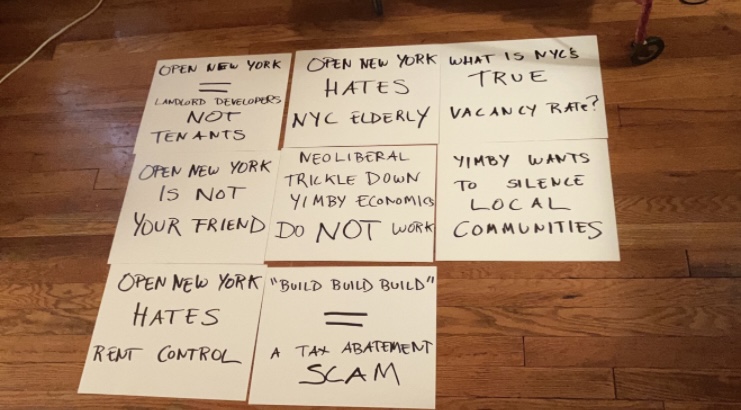 OPEN NEW YORK
=
LANDLORD DEVELOPERS
NOT
TENANTS
OPEN NEW YORK
HATES
NYC ELDERLY
WHAT IS NYC'S
TRUE
VACANCY RATE?
OPEN NEW YORK
IS NOT
YOUR FRIEND
NEOLIBERAL
TRICKLE DOWN
YIMBY ECONOMICS
DO NOT WORK
YIMBY WANTS
TO SILENCE
LOCAL
COMMUNITIES
OPEN NEW YORK
HATES
RENT CONTROL
"BUILD BUILD BUILD"
=
A TAX ABATEMENT
SCAM